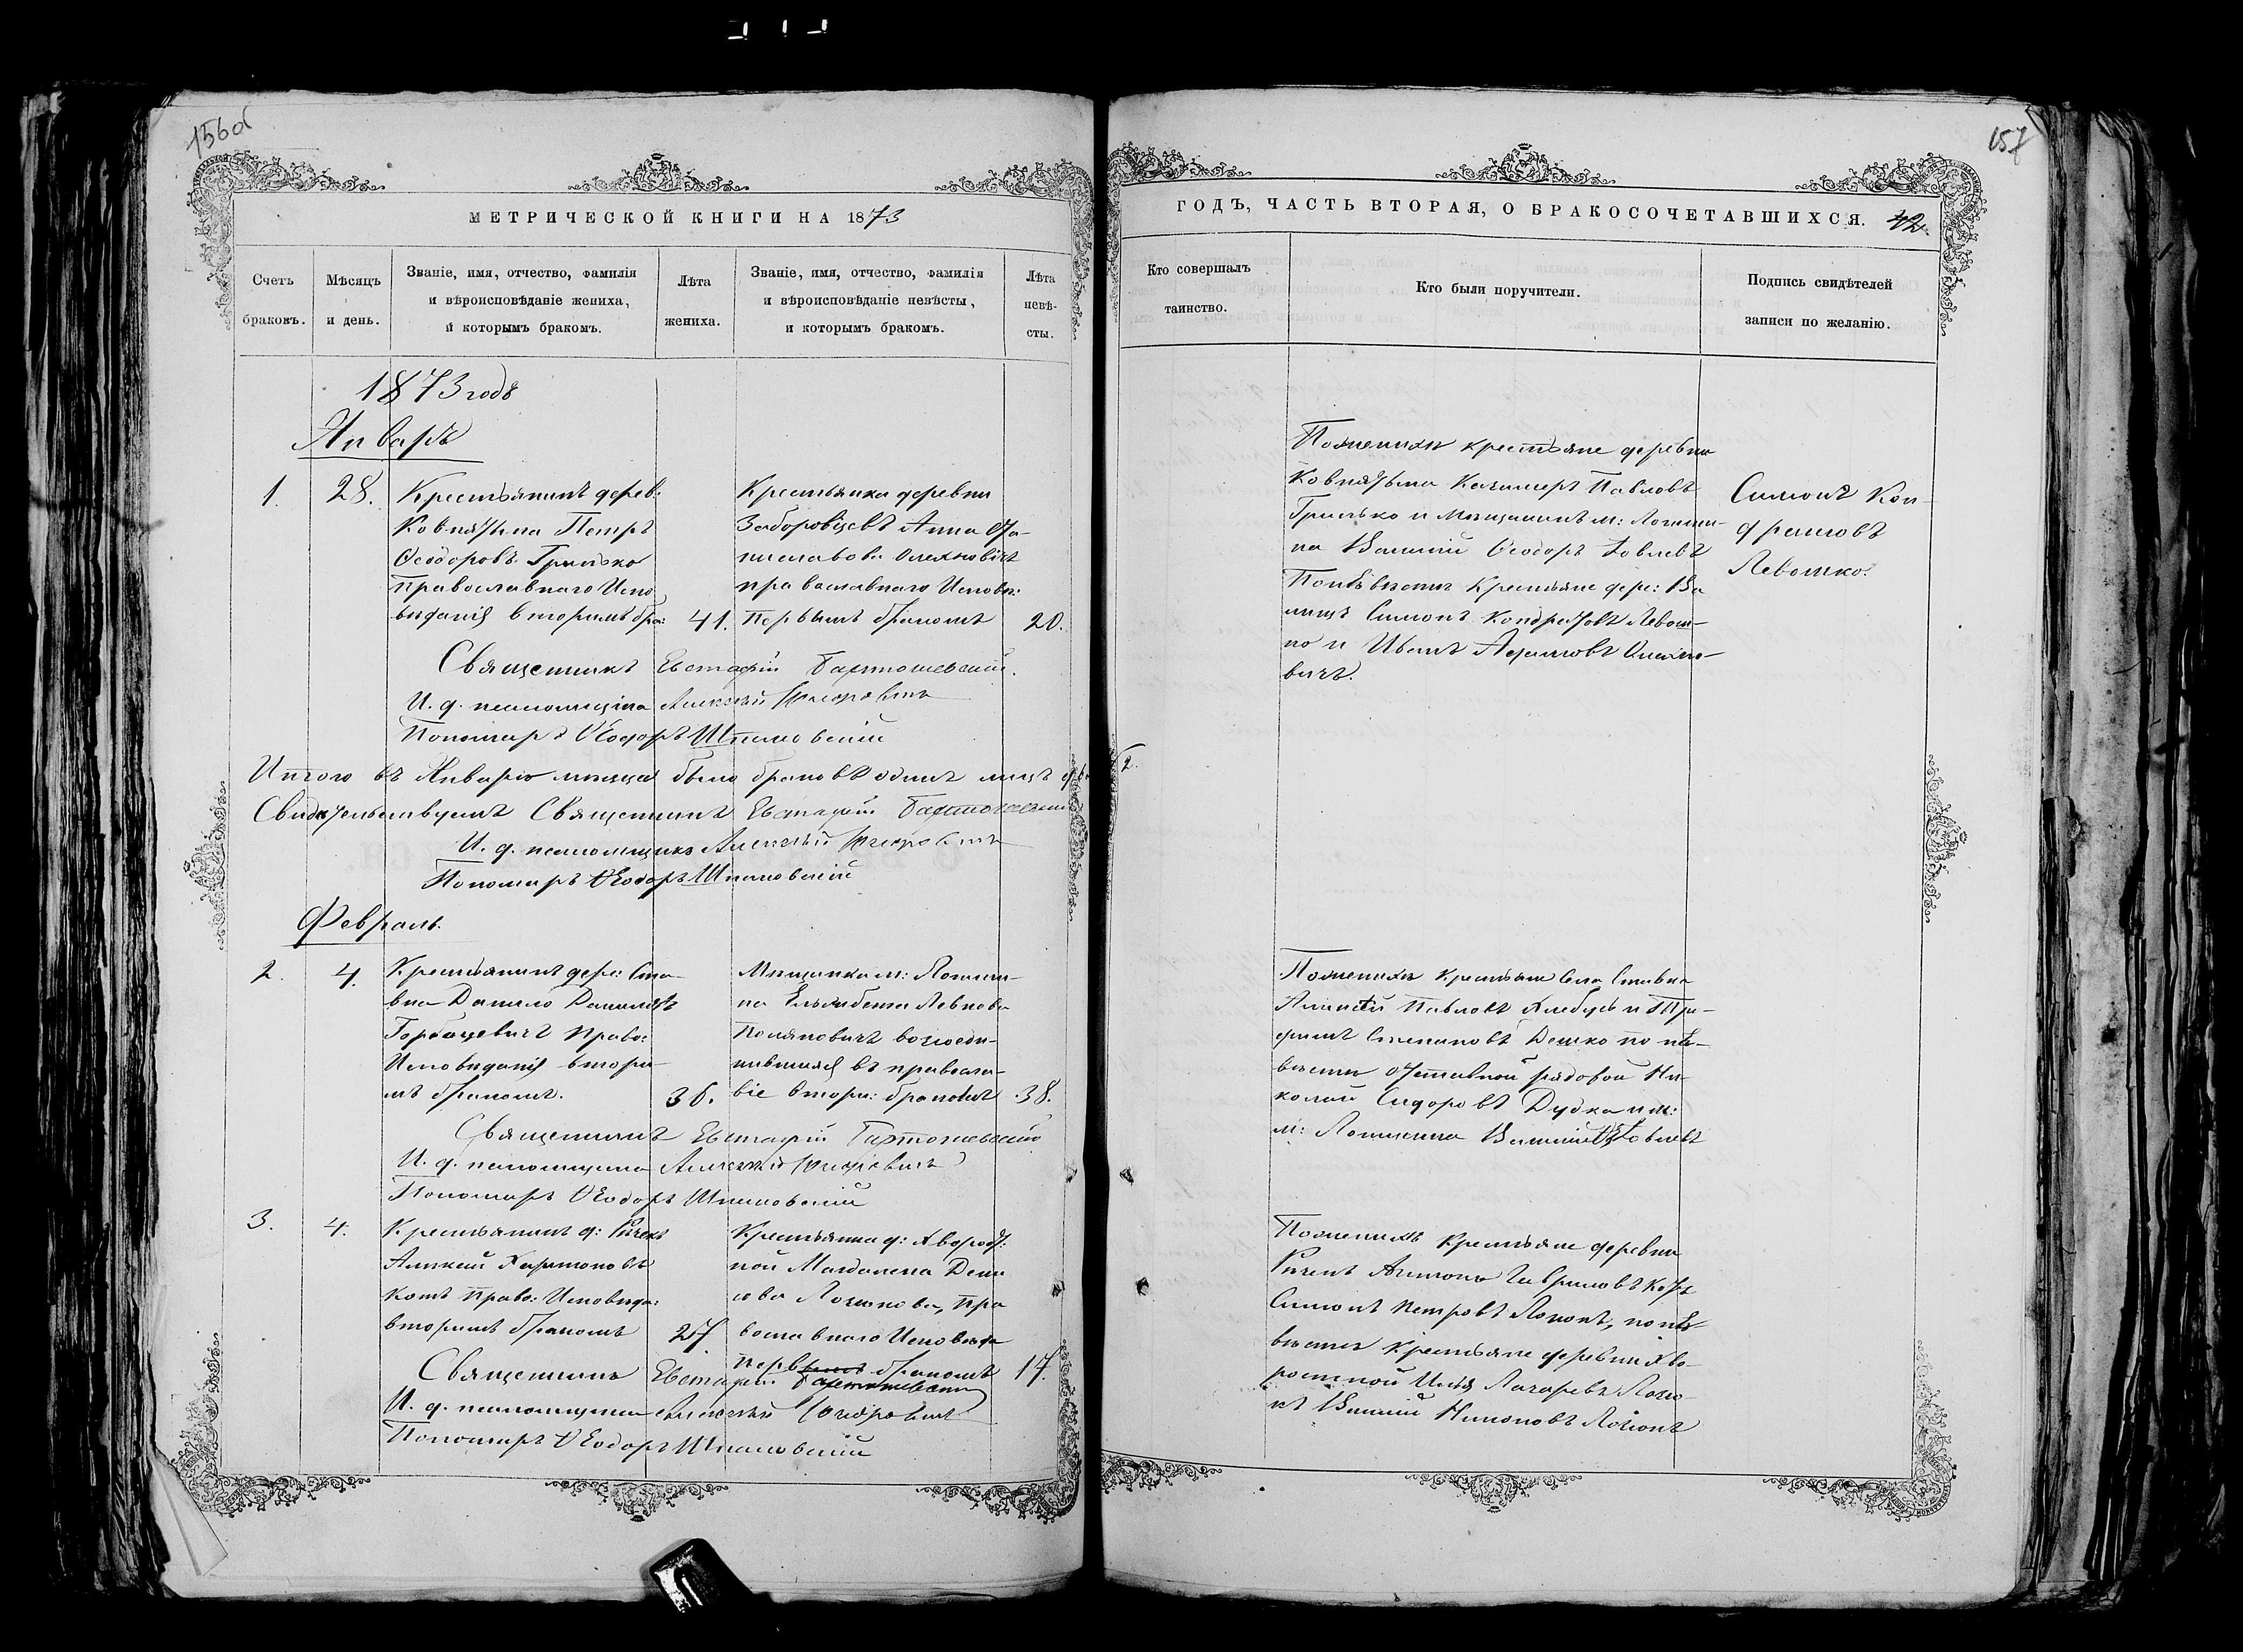 156об
МЕТРИЧЕСКОЙ КНИГИ НА 1873
Счетъ браковъ.
Мѣсяцъ и день.
Званіе, имя, отчество, фамилія
и вѣроисповѣданіе жениха,
и которымъ бракомъ.
Лѣта жениха.
Званіе, имя, отчество, фамилія
и вѣроисповѣданіе невѣсты,
и которымъ бракомъ.
Лѣта невѣ-
сты.
1873 годъ
Январь
1.
28.
Крестьянинъ дерев:
Ковнятина Петръ
Ѳеодоровъ Гринько
Православнаго Испо
вѣданія вторымъ бра:
41.
Крестьянка деревни
Заборовцевъ Анна Ѳа-
православнаго Исповѣ:
Первымъ бракомъ
20.
Священникъ Евстафій
И. д. псаломщика Алексѣй
Пономарь Ѳеодоръ
Итого въ Январѣ мѣсяцѣ было браковъ одинъ лицъ
Свидѣтельствуемъ Священникъ Евстафій
И. д. псаломщика Алексѣй
Пономарь Ѳеодоръ
Февраль.
2.
4.
Крестьянинъ дере: Ста-
вка Данило Даниловъ
Горбацевичъ Право:
Исповѣданія вторы-
мъ бракомъ.
36.
Мѣщанка м: Логиши-
на Елизабета Левкова
возсоеди-
нившаяся въ правосла-
віе вторы: бракомъ
38.
Священникъ Евстафій
И. д. псаломщика Алексѣй
Пономарь Ѳеодоръ
3.
4.
Крестьянинъ д: Рѣчекъ
Алексѣй Харитоновъ
Котъ Право: Исповѣда:
вторымъ бракомъ
27
Крестьянка д: Хворост:
ной Магдалена Дени
сова Логонова, Пра
вославнаго Исповѣда
первымъ бракомъ
17.
Священникъ Евстафій
И. д. псаломщика Алексѣй
Пономарь Ѳеодоръ
157
ГОДЪ, ЧАСТЬ ВТОРАЯ, О БРАКОСОЧЕТАВШИХСЯ. 42.
Кто совершалъ
таинство.
Кто были поручители.
Подпись свидѣтелей
записи по желанію.
По женихѣ крестьяне деревни
Ковнятина Казимеръ Павловъ
Гринько и мѣщанинъ м: Логиши-
на Василій Ѳеодоръ
По невѣстѣ Крестьяне дере: Ва
лищъ Симонъ Кондратовъ Левош-
ко и Иванъ
вичъ.
Симонъ Кон-
дратовъ
Левошко.
2.
По женихѣ крестьяне села Ставка
Алексѣй Павловъ Хлебусъ и Тро-
фимъ Степановъ Дешко по не-
вѣстѣ отставной рядовой Ни-
колай Сидоровъ Дудка и м:
м: Логишина Василій
По женихѣ крестьяне деревни
Рѣчекъ Антонъ Гавриловъ Котъ
Симонъ Петровъ Логонъ, по не
вѣстѣ крестьяне деревни Хво
ростной Илья Лазаревъ Лого
нъ Василій Никоновъ Логонъ